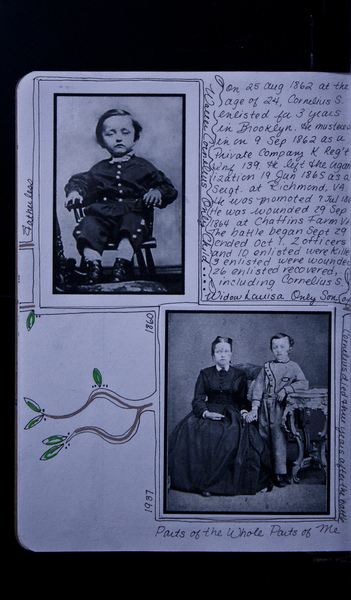 On 25 aug 1862 at the
age of 24, Cornelius S.
enlisted for 3 years
in Brooklyn. He mustered
in on 9 Sep 1862 as a
Private Company K Reg't
Inf 139. He left the organ
ization 19 Jun 1865 as a
Sergt. at Richmond, VA.
He was promoted 7 Jul 186
He was wounded 29 Sep
1864 at Chaffins Farm Va
The battle began Sept 29
ended Oct 7, 2 officers
and 10 enlisted were kille
3 enlisted were wounded
26 enlisted recovered,
including Cornelius S.
Widow Louisa Only Son
Only Child
Fatherless
1860
1937
Cornelius died three years after the battle
Parts of the Whole Parts of Me